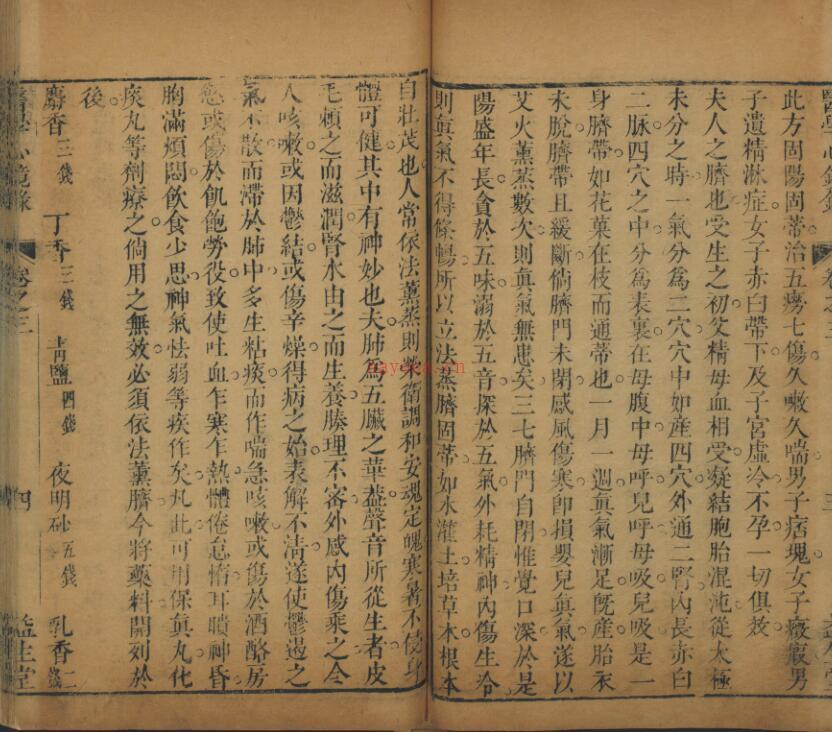 醫學心鏡錄
卷之三
三
益生堂
此方固陽固蒂治五癆七傷久嗽久喘男子痞塊女子癥瘕男
子遺精淋症女子赤白帶下及子宮虛冷不孕一切俱效
夫人之臍也受生之初父精母血相受凝結胞胎混沌從太極
未分之時一氣分爲二穴穴中如產四穴外通二腎內長赤白
二脉四穴之中分爲表裏在母腹中母呼兒呼母吸兒吸是一
身臍帶如花菓在枝而通蒂也一月一週眞氣漸足旣產胎衣
未脫臍帶且緩斷倘臍門未閉感風傷寒卽損嬰兒眞氣遂以
艾火薰蒸數次則眞氣無患矣三七臍門自閉惟覺口深於是
陽盛年長貪於五味溺於五音探於五氣外耗精神內傷生冷
則眞氣不得條暢所以立法蒸臍固蒂如水灌土培草木根本
自壯茂也人常依法薰蒸則榮衛調和安魂定魄寒暑不侵身
體可健其中有神妙也夫肺爲五臟之華葢聲音所從生者皮
毛賴之而滋潤腎水由之而生養腠理不審外感內傷乘之令
人咳嗽或因鬱結或傷辛燥得病之始表解不清遂使鬱遏之
氣不散而滯於肺中多生粘痰而作喘急咳嗽或傷於酒酪房
慾或傷於飢飽勞役致使吐血乍寒乍熱體倦怠惰耳聵神昏
胸滿煩悶飲食少思神氣怯弱等疾作矣丸此可用保眞丸化
痰丸等劑療之倘用之無效必須依法薰臍今將藥料開列於
後
麝香三錢 丁香三錢 靑鹽四錢 夜明砂五錢 乳香二錢
醫學心鏡錄
卷之三
四
益生堂
nayona.cn